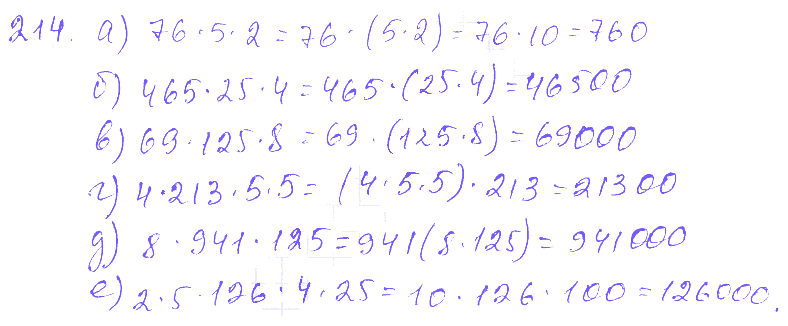 214. а) 76·5·2=76·(5·2)=76·10=760
б) 465·25·4=465·(25·4)=46500
в) 69·125·8=69·(125·8)=69000
г) 4·213·5·5=(4·5·5)·213=21300
д) 8·941·125=941(8·125)=941000
е) 2·5·126·4·25=10·126·100=126000.